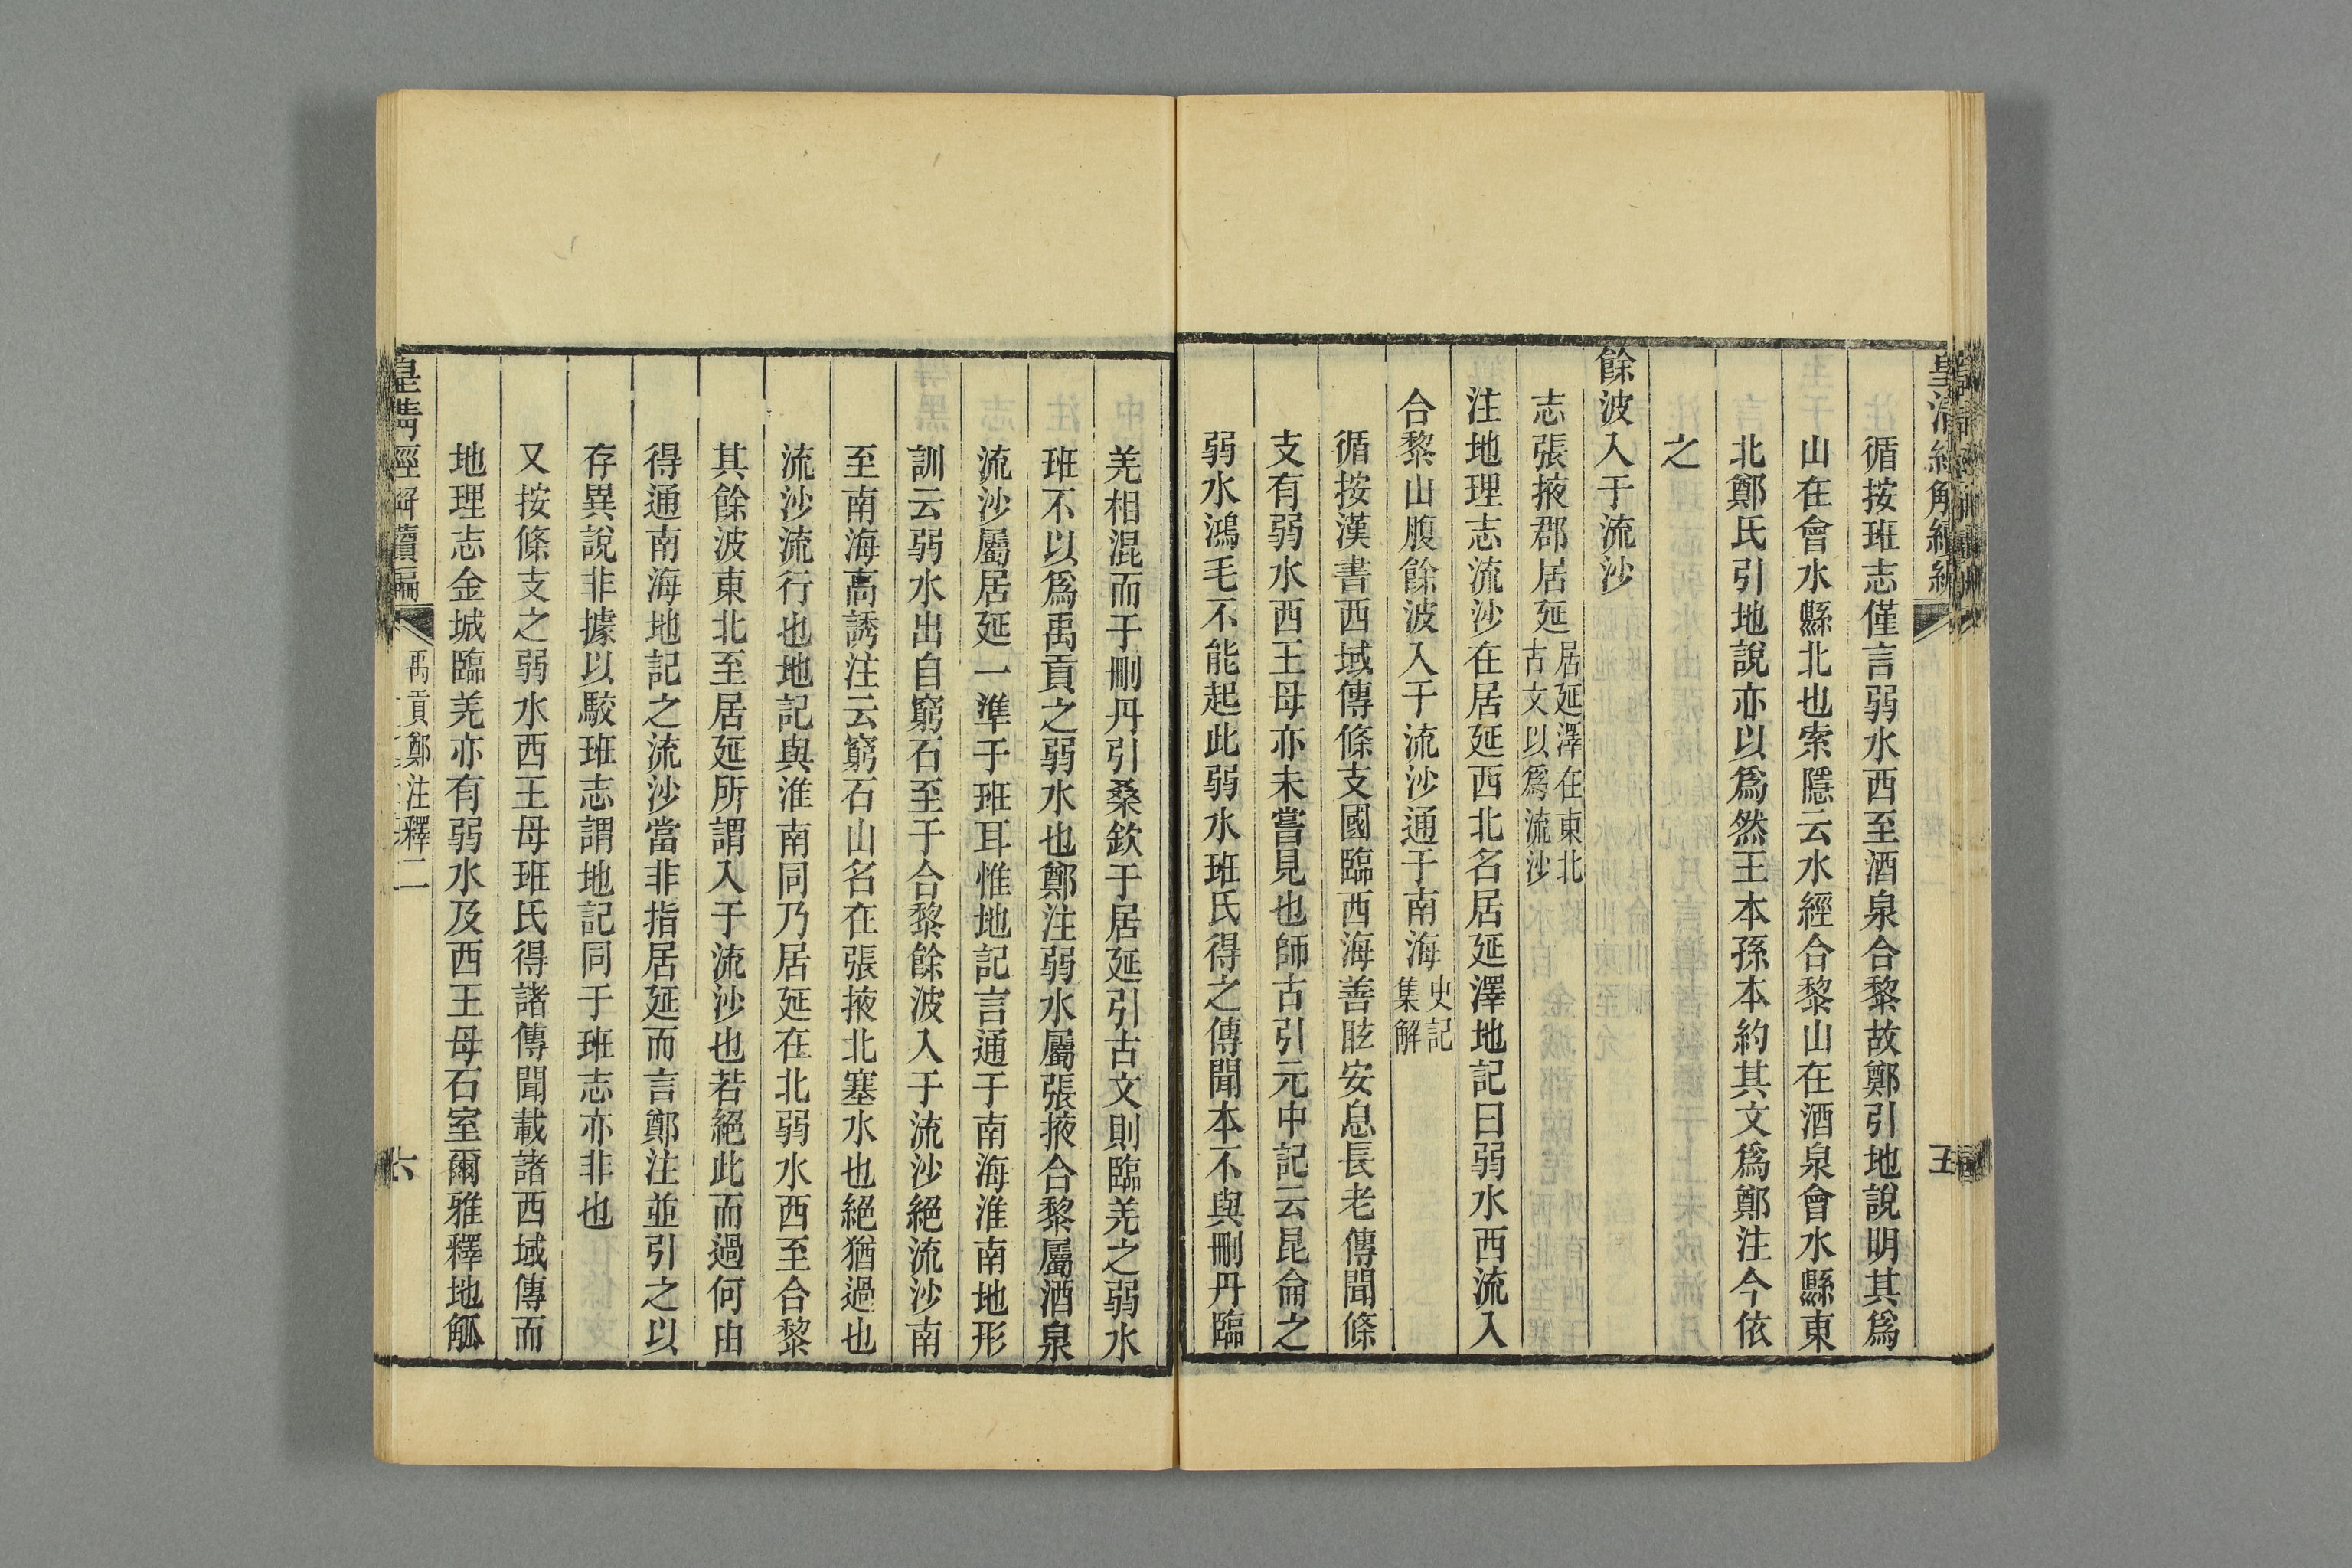 循按班志僅言弱水西至酒泉合黎故鄭引地說明其爲
山在會水縣北也索隱云水經合黎山在酒泉會水縣東
北鄭氏引地說亦以爲然王本孫本約其文爲鄭注今依
之
餘波入于流沙
志張掖郡居延居延澤在東北古文以爲流沙
注地理志流沙在居延西北名居延澤地記曰弱水西流入
合黎山腹餘波入于流沙通于南海史記集解
循按漢書西域傳條支國臨西海善眩安息長老傳聞條
支有弱水西王母亦未嘗見也師古引元中記云昆侖之
弱水鴻毛不能起此弱水班氏得之傳聞本不與刪丹臨
羌相混而于刪丹引桑欽于居延引古文則臨羌之弱水
班不以爲禹貢之弱水也鄭注弱水屬張掖合黎屬酒泉
流沙屬居延一準于班耳惟地記言通于南海淮南地形
訓云弱水出自窮石至于合黎餘波入于流沙絕流沙南
至南海高誘注云窮石山名在張掖北塞水也絕猶過也
流沙流行也地記與淮南同乃居延在北弱水西至合黎
其餘波東北至居延所謂入于流沙也若絕此而過何由
得通南海地記之流沙當非指居延而言鄭注並引之以
存異說非據以駮班志謂地記同于班志亦非也
又按條支之弱水西王母班氏得諸傳聞載諸西域傳而
地理志金城臨羌亦有弱水及西王母石室爾雅釋地觚
皇清經解續編
禹貢鄭注釋二
六